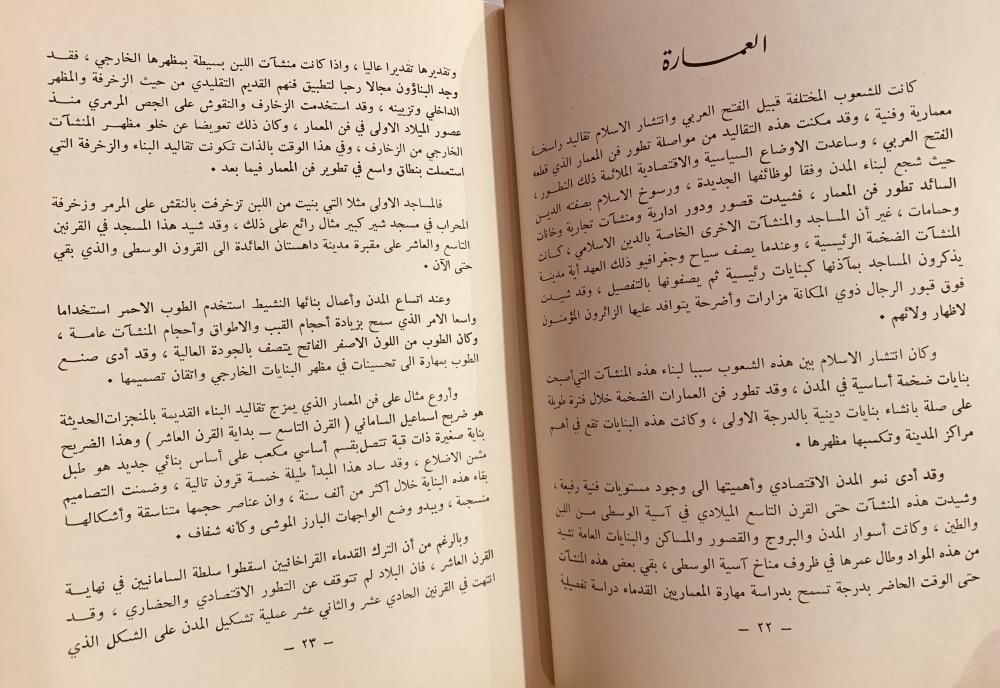 العمارة
كانت للشعوب المختلفة قبيل الفتح العربي وانتشار الاسلام تقاليد راسخة
معمارية وفنية ، وقد مكنت هذه التقاليد من مواصلة تطور فن المعمار الذي قطعه
الفتح العربي ، وساعدت الاوضاع السياسية والاقتصادية الملائمة ذلك التطور ،
حيث شجع لبناء المدن وفقا لوظائفها الجديدة ، ورسوخ الاسلام بصفته الدين
السائد تطور فن المعمار ، فشيدت قصور ودور ادارية ومنشآت تجارية وخانات
وحمامات ، غير أن المساجد والمنشآت الاخرى الخاصة بالدين الاسلامي ، كانت
المنشآت الضخمة الرئيسية ، وعندما يصف سياح وجغرافيو ذلك العهد أية مدينة
يذكرون المساجد بمآذنها كبنايات رئيسية ثم يصفونها بالتفصيل ، وقد شيدت
فوق قبور الرجال ذوي المكانة مزارات وأضرحة يتوافد عليها الزائرون المؤمنون
لاظهار ولائهم •
وكان انتشار الاسلام بين هذه الشعوب سببا لبناء هذه المنشآت التي أصبحت
بنايات ضخمة أساسية في المدن ، وقد تطور فن العمارات الضخمة خلال فترة طويلة
على صلة بانشاء بنايات دينية بالدرجة الاولى ، وكانت هذه البنايات تقع في أهم
مراكز المدينة وتكسبها مظهرها •
وقد أدى نمو المدن الاقتصادي وأهميتها الى وجود مستويات فنية رفيعة ،
وشيدت هذه المنشآت حتى القرن التاسع الميلادي في آسية الوسطى من اللبن
والطين ، وكانت أسوار المدن والبروج والقصور والمساكن والبنايات العامة تشيد
من هذه المواد وطال عمرها في ظروف مناخ آسية الوسطى ، بقي بعض هذه المنشآت
حتى الوقت الحاضر بدرجة تسمح بدراسة مهارة المعماريين القدماء دراسة تفصيلية
– ٢٢ –
وتقديرها تقديرا عاليا ، واذا كانت منشآت اللبن بسيطة بمظهرها الخارجي ، فقد
وجد البناؤون مجالا رحبا لتطبيق فنهم القديم التقليدي من حيث الزخرفة والمظهر
الداخلي وتزيينه ، وقد استخدمت الزخارف والنقوش على الجص المرمري منذ
عصور الميلاد الاولى في فن المعمار ، وكان ذلك تعويضا عن خلو مظهر المنشآت
الخارجي من الزخارف ، وفي هذا الوقت بالذات تكونت تقاليد البناء والزخرفة التي
استعملت بنطاق واسع في تطوير فن المعمار فيما بعد •
فالمساجد الاولى مثلا التي بنيت من اللبن تزخرفت بالنقش على المرمر وزخرفة
المحراب في مسجد شير كبير مثال رائع على ذلك ، وقد شيد هذا المسجد في القرنين
التاسع والعاشر على مقبرة مدينة داهستان العائدة الى القرون الوسطى والذي بقي
حتى الآن •
وعند اتساع المدن وأعمال بنائها النشيط استخدم الطوب الاحمر استخداما
واسعا الامر الذي سمح بزيادة أحجام القبب والاطواق وأحجام المنشآت عامة ،
وكان الطوب من اللون الاصفر الفاتح يتصف بالجودة العالية ، وقد أدى صنع
الطوب بمهارة الى تحسينات في مظهر البنايات الخارجي واتقان تصميمها •
وأروع مثال على فن المعمار الذي يمزج تقاليد البناء القديمة بالمنجزات الحديثة
هو ضريح اسماعيل الساماني ( القرن التاسع – بداية القرن العاشر ) وهذا الضريح
بناية صغيرة ذات قبة تتصل بقسم أساسي مكعب على أساس بنائي جديد هو طبل
مثمن الاضلاع ، وقد ساد هذا المبدأ طيلة خمسة قرون تالية ، وضمنت التصاميم
بقاء هذه البناية خلال أكثر من ألف سنة ، وان عناصر حجمها متناسقة وأشكالها
منسجمة ، ويبدو وضع الواجهات البارز الموشى وكأنه شفاف •
وبالرغم من أن الترك القدماء القراخانيين اسقطوا سلطة السامانيين في نهاية
القرن العاشر ، فان البلاد لم تتوقف عن التطور الاقتصادي والحضاري ، وقد
انتهت في القرنين الحادي عشر والثاني عشر عملية تشكيل المدن على الشكل الذي
– ٢٣ –